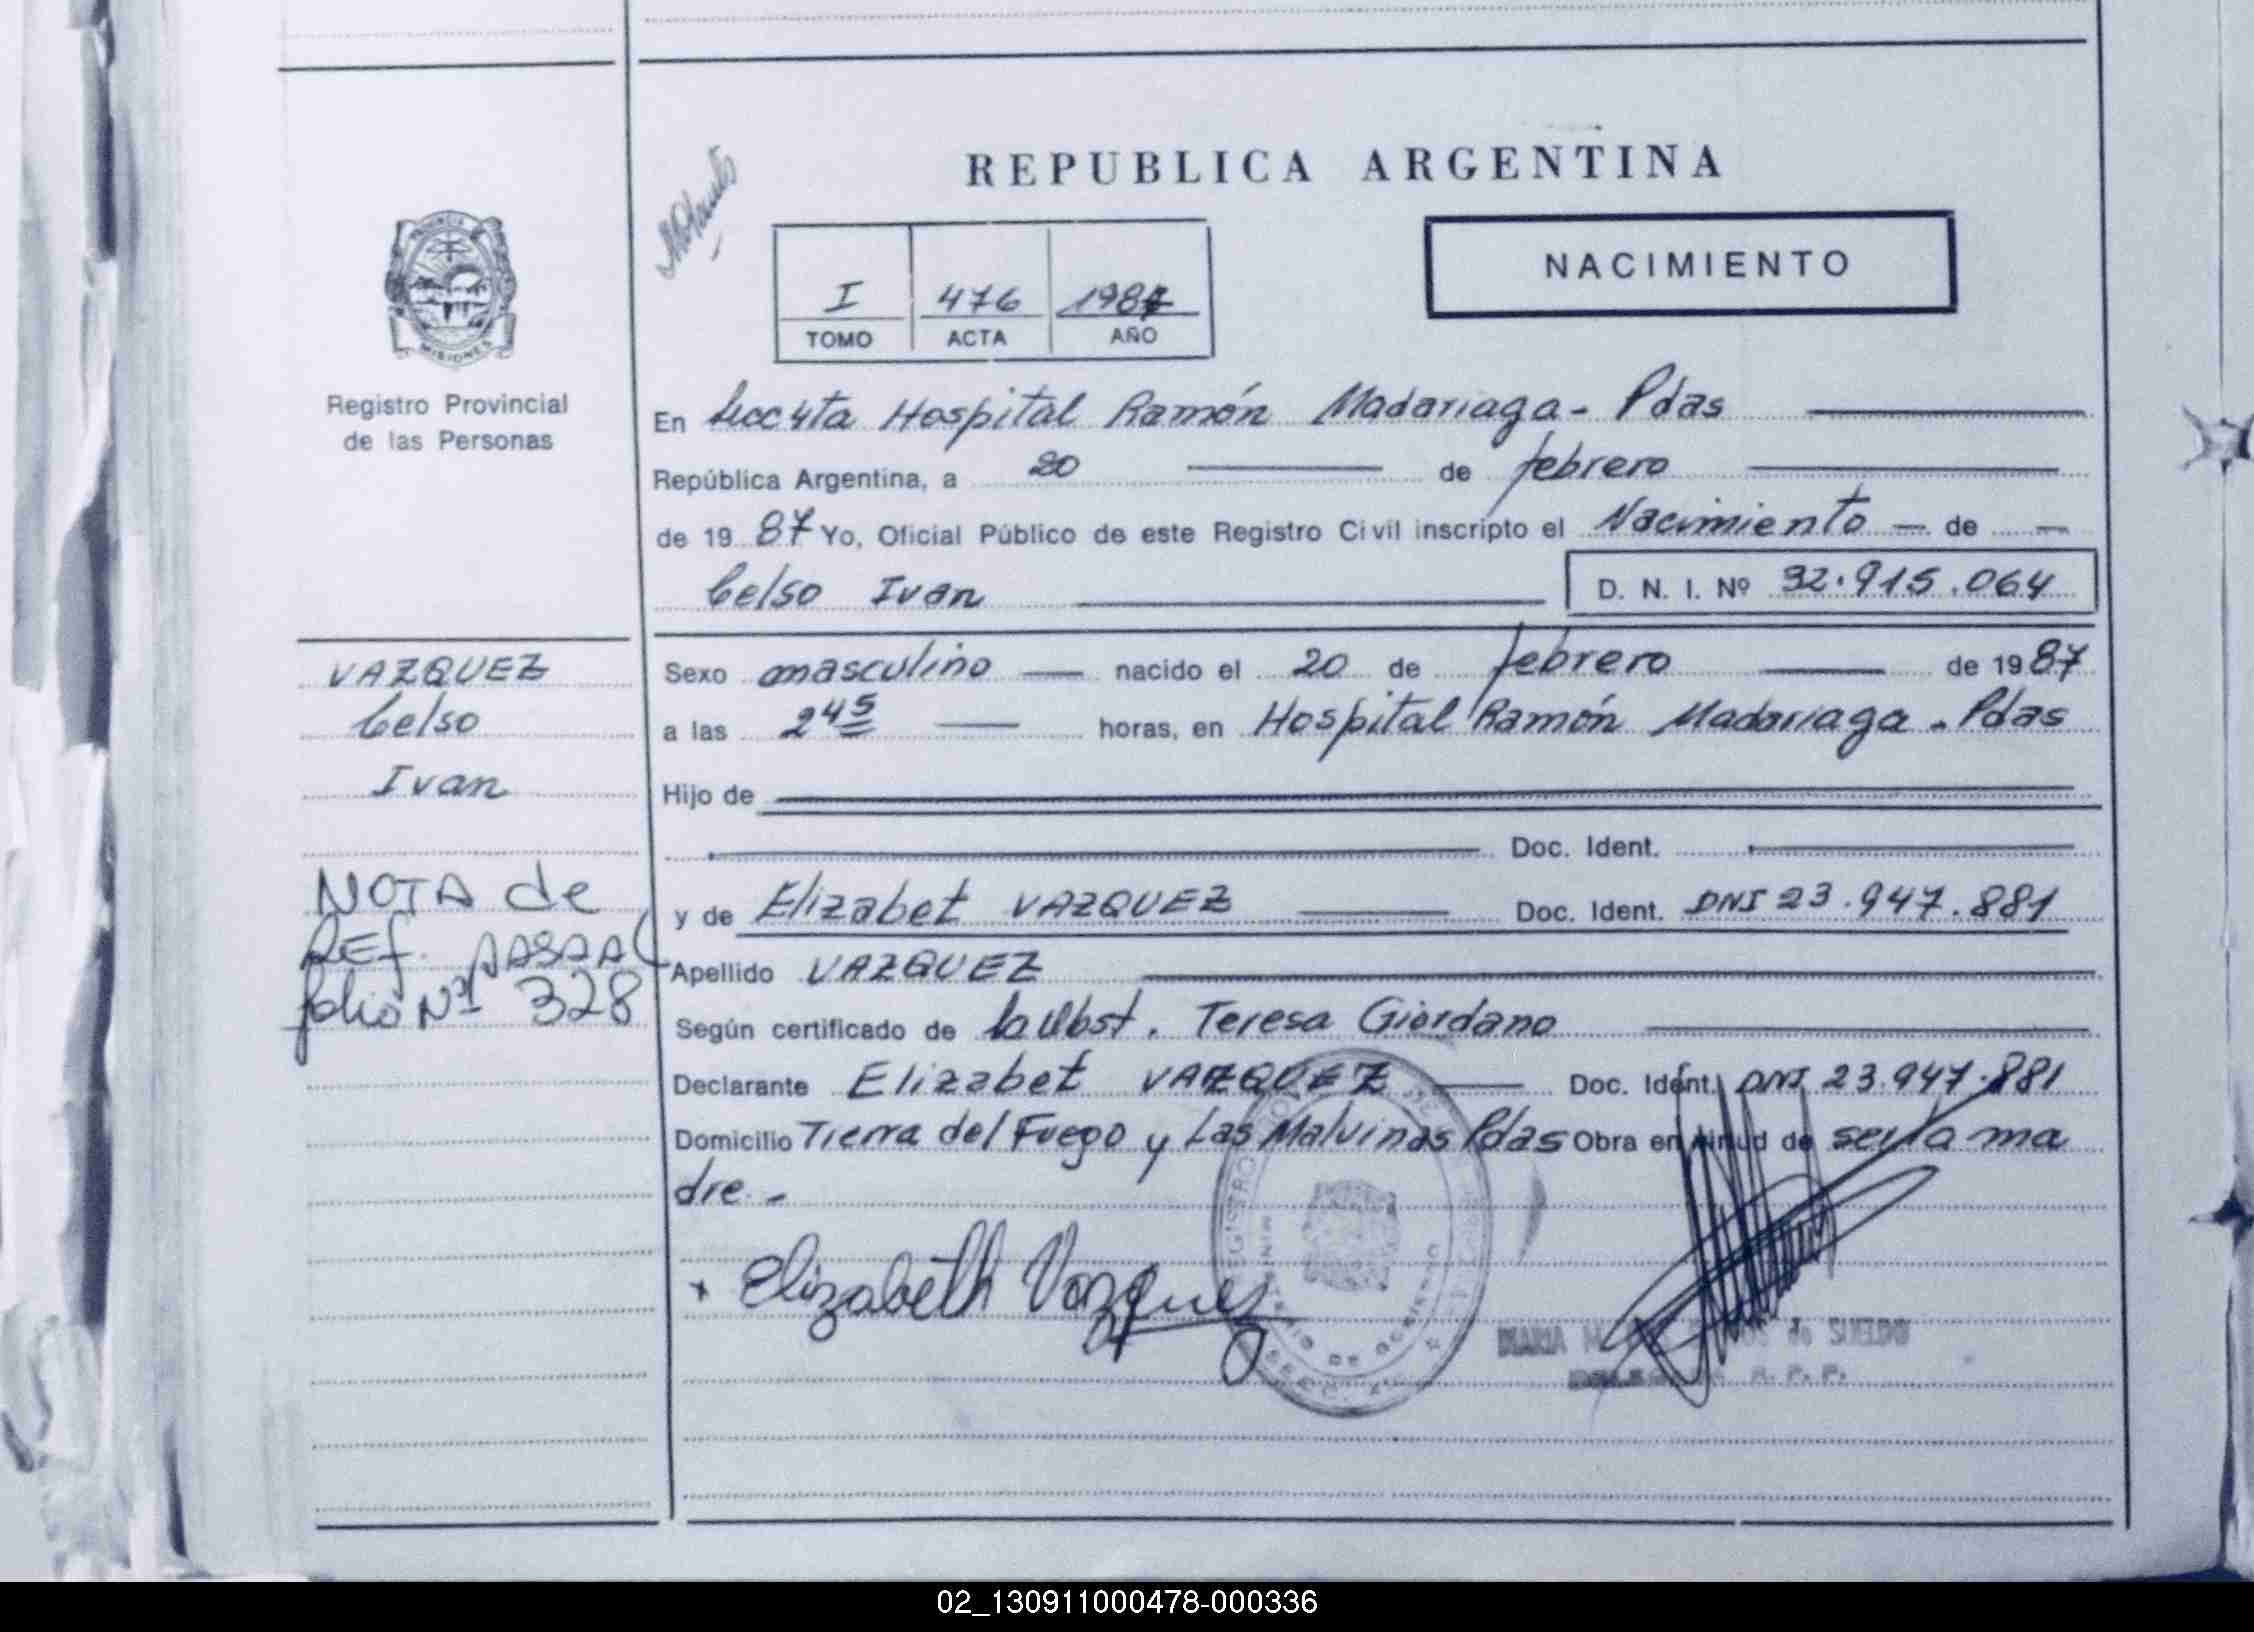 REPUBLICA ARGENTINA
NACIMIENTO
I 476 1987
TOMO ACTA AÑO
PROVINCIA
MISIONES
Registro Provincial
de las Personas
En Secc 4ta Hospital Ramón Madariaga - Pdas
República Argentina, a 20 de febrero
de 19 87 Yo, Oficial Público de este Registro Civil inscripto el Nacimiento - de -
Celso Ivan D. N. I. Nº 32.915.064
VAZQUEZ
Celso
Ivan
NOTA de
REF.
folio Nº 328
Sexo masculino nacido el 20 de febrero de 19 87
a las 2 45 horas, en Hospital Ramón Madariaga - Pdas
Hijo de
Doc. Ident.
y de Elizabet VAZQUEZ Doc. Ident. DNI 23.947.881
Apellido VAZQUEZ
Según certificado de la Obst. Teresa Giordano
Declarante Elizabet VAZQUEZ Doc. Ident. DNI 23.947.881
Domicilio Tierra del Fuego y Las Malvinas Pdas Obra en virtud de ser la ma
dre. -
Elizabeth Vazquez
REGISTRO
MINISTERIO DE GOBIERNO
MARIA de SUELDO
R. P. P.
02_130911000478-000336